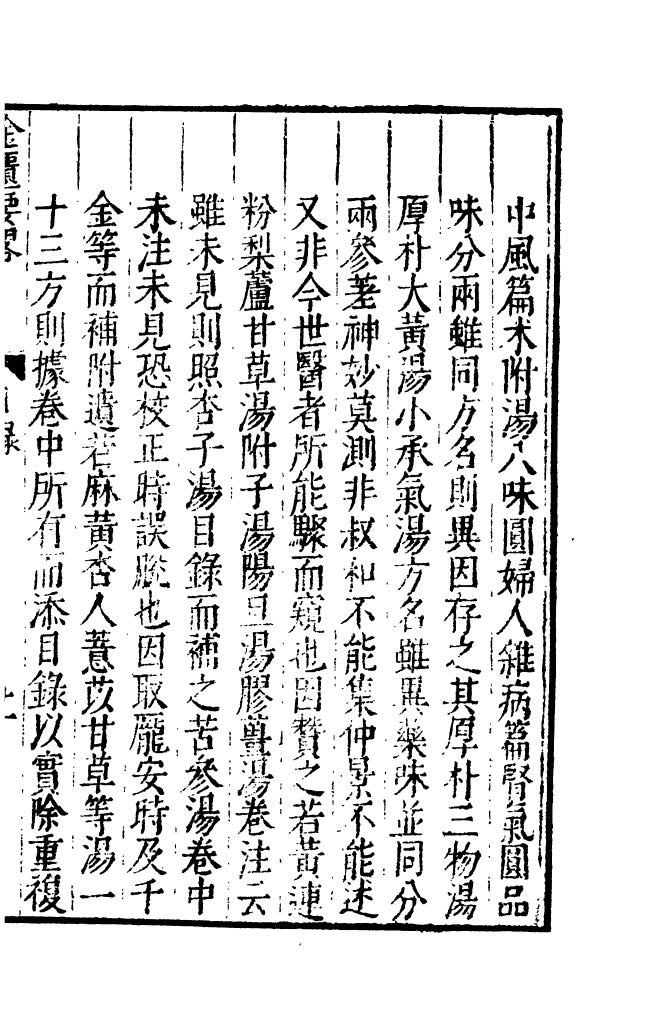 中風篇末附湯八味圓婦人雜病篇腎氣圓品
味分兩雖同方名則異因存之其厚朴三物湯
厚朴大黃湯小承氣湯方名雖異藥味並同分
兩參差神妙莫測非叔和不能集仲景不能述
又非今世醫者所能驟而窺也因贊之若黃連
粉梨蘆甘草湯附子湯陽旦湯膠薑湯卷注云
雖未見則照杏子湯目錄而補之苦參湯卷中
未注未見恐校正時誤脫也因取龐安時及千
金等而補附遺若麻黃杏人薏苡甘草等湯一
十三方則據卷中所有而添目錄以實除重複
金匱要畧 目錄 十一